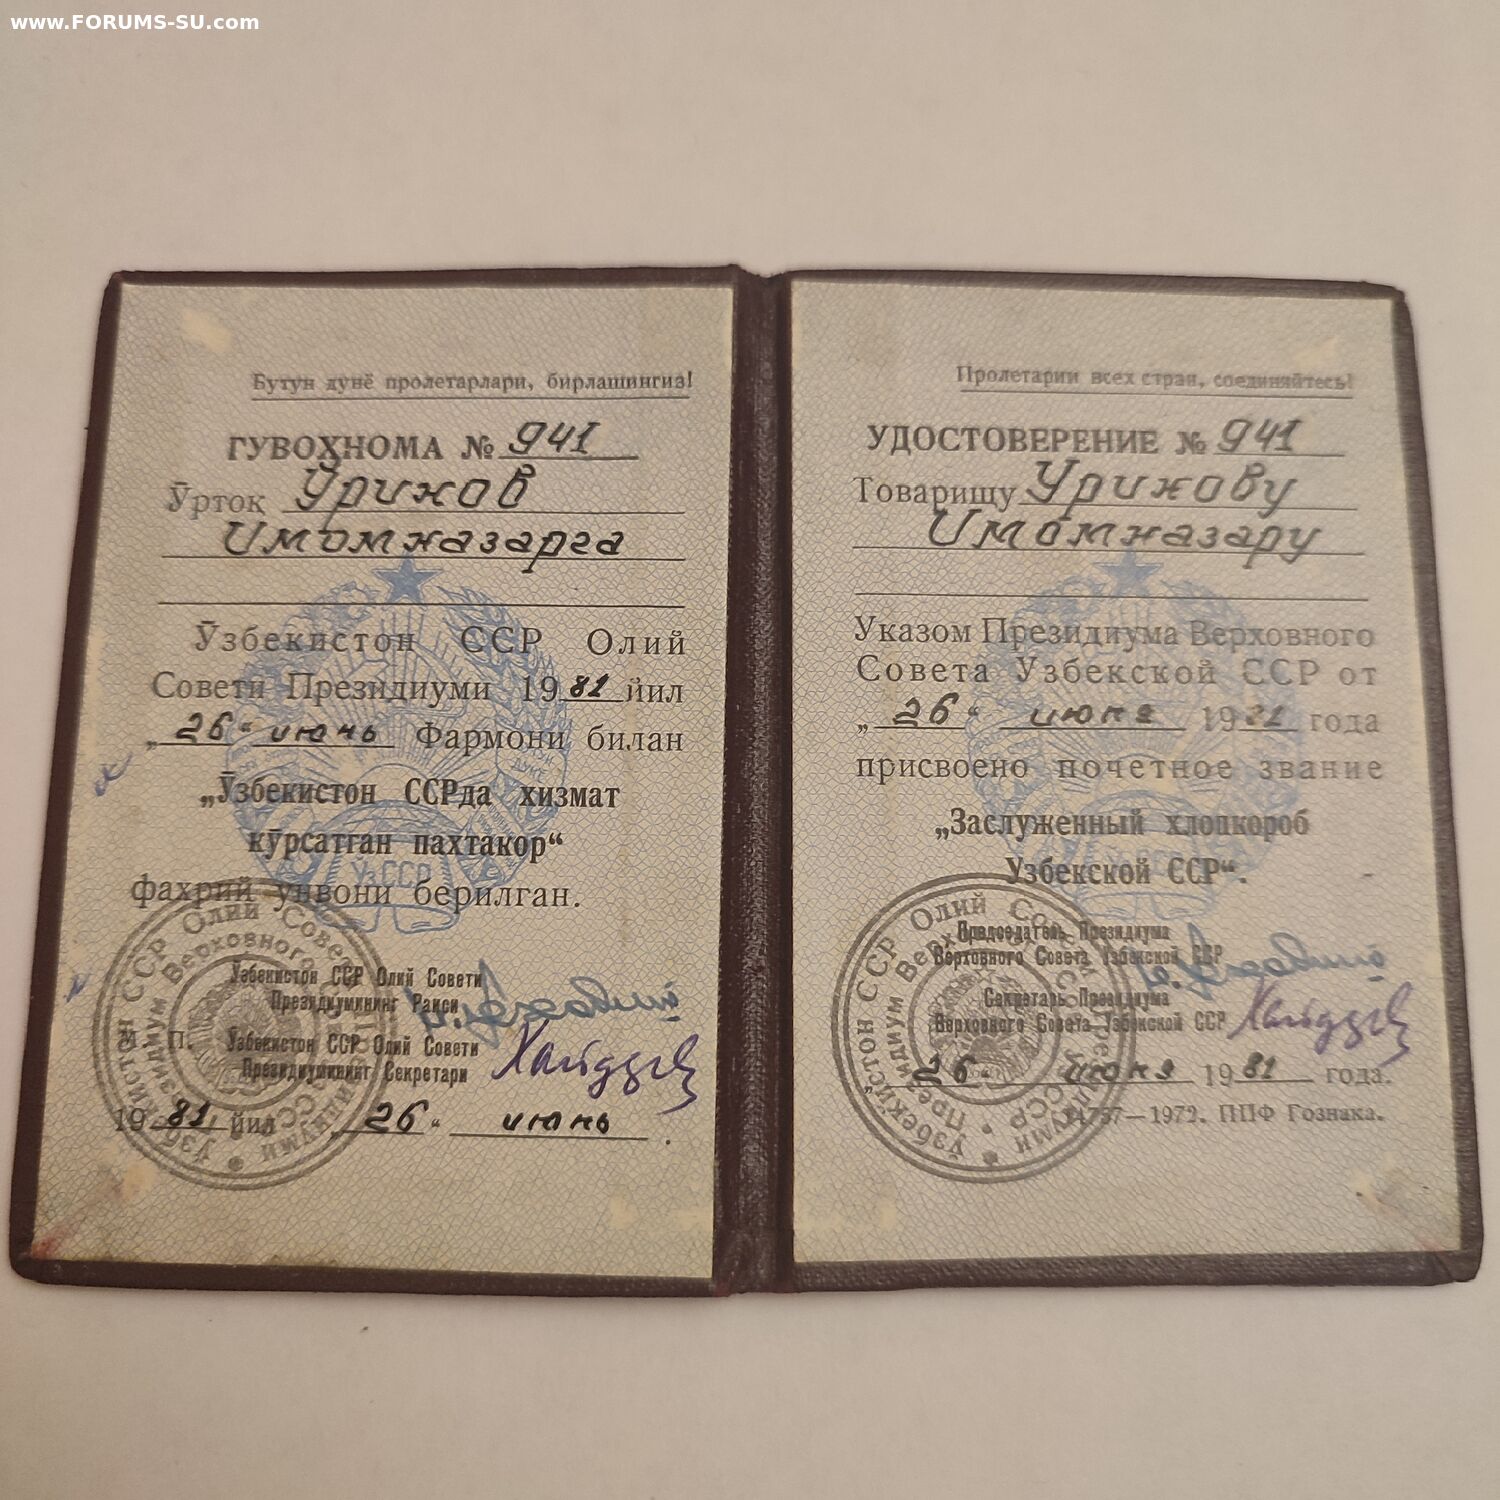 www.FORUMS-SU.com
Бутун дунё пролетарлари, бирлашингиз!
ГУВОҲНОМА № 941
Ўртоқ Уринов
Имомназарга
Ўзбекистон ССР Олий
Совети Президиуми 1981 йил
„26“ июнь Фармони билан
„Ўзбекистон ССРда хизмат
кўрсатган пахтакор“
фахрий унвони берилган.
Ўзбекистон ССР Олий Совети
Президиумининг Раиси
М. П. Ўзбекистон ССР Олий Совети
Президиумининг Секретари
1981 йил „26“ июнь.
Пролетарии всех стран, соединяйтесь!
УДОСТОВЕРЕНИЕ № 941
Товарищу Уринову
Имомназару
Указом Президиума Верховного
Совета Узбекской ССР от
„26“ июня 1981 года
присвоено почетное звание
„Заслуженный хлопкороб
Узбекской ССР“.
Председатель Президиума
Верховного Совета Узбекской ССР
Секретарь Президиума
Верховного Совета Узбекской ССР
26 июня 1981 года.
1972. ППФ Гознака.
Ўзбекистон ССР Олий Совети Президиуми
Президиум Верховного Совета ССР
ЎзССР